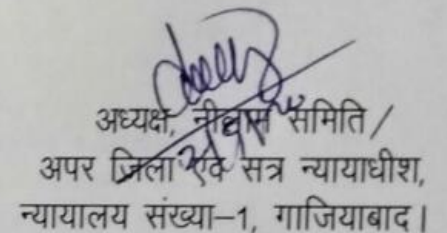 अध्यक्ष, नीलाम समिति /
अपर जिला एवं सत्र न्यायाधीश,
न्यायालय संख्या–1, गाजियाबाद।